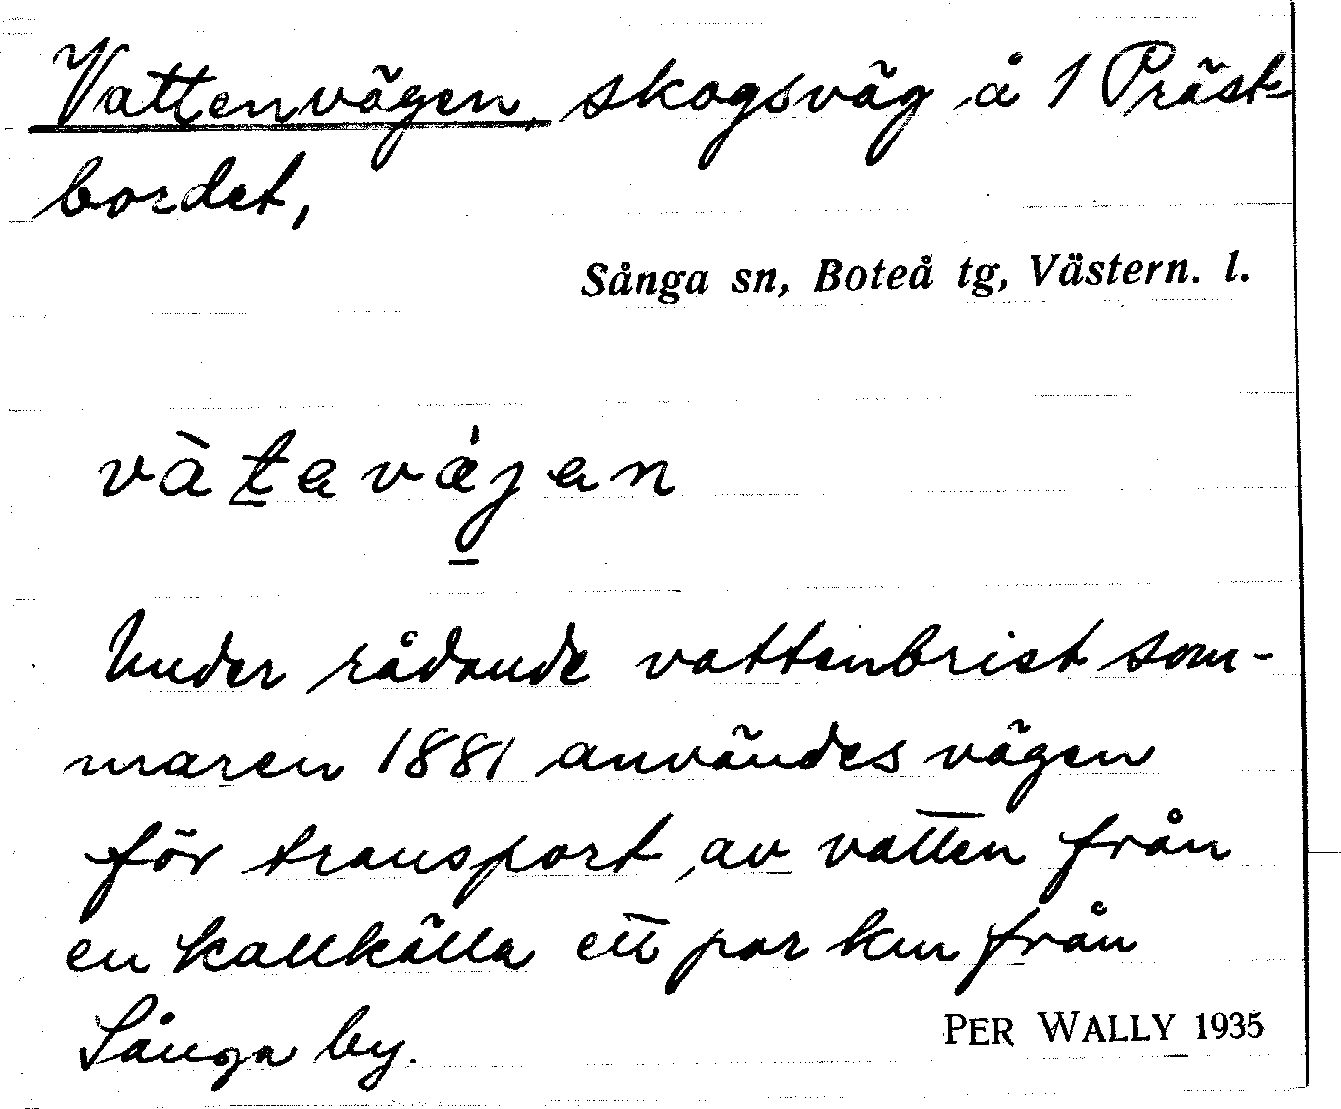 Vattenvägen, skogsväg å 1 Präst-
bordet,
Sånga sn, Boteå tg, Västern. l.
vàt̲avǽj̲an
Under rådande vattenbrist som-
maren 1881 användes vägen
för transport av vatten från
en kallkälla ett par km från
Sånga by.
PER WALLY 1935